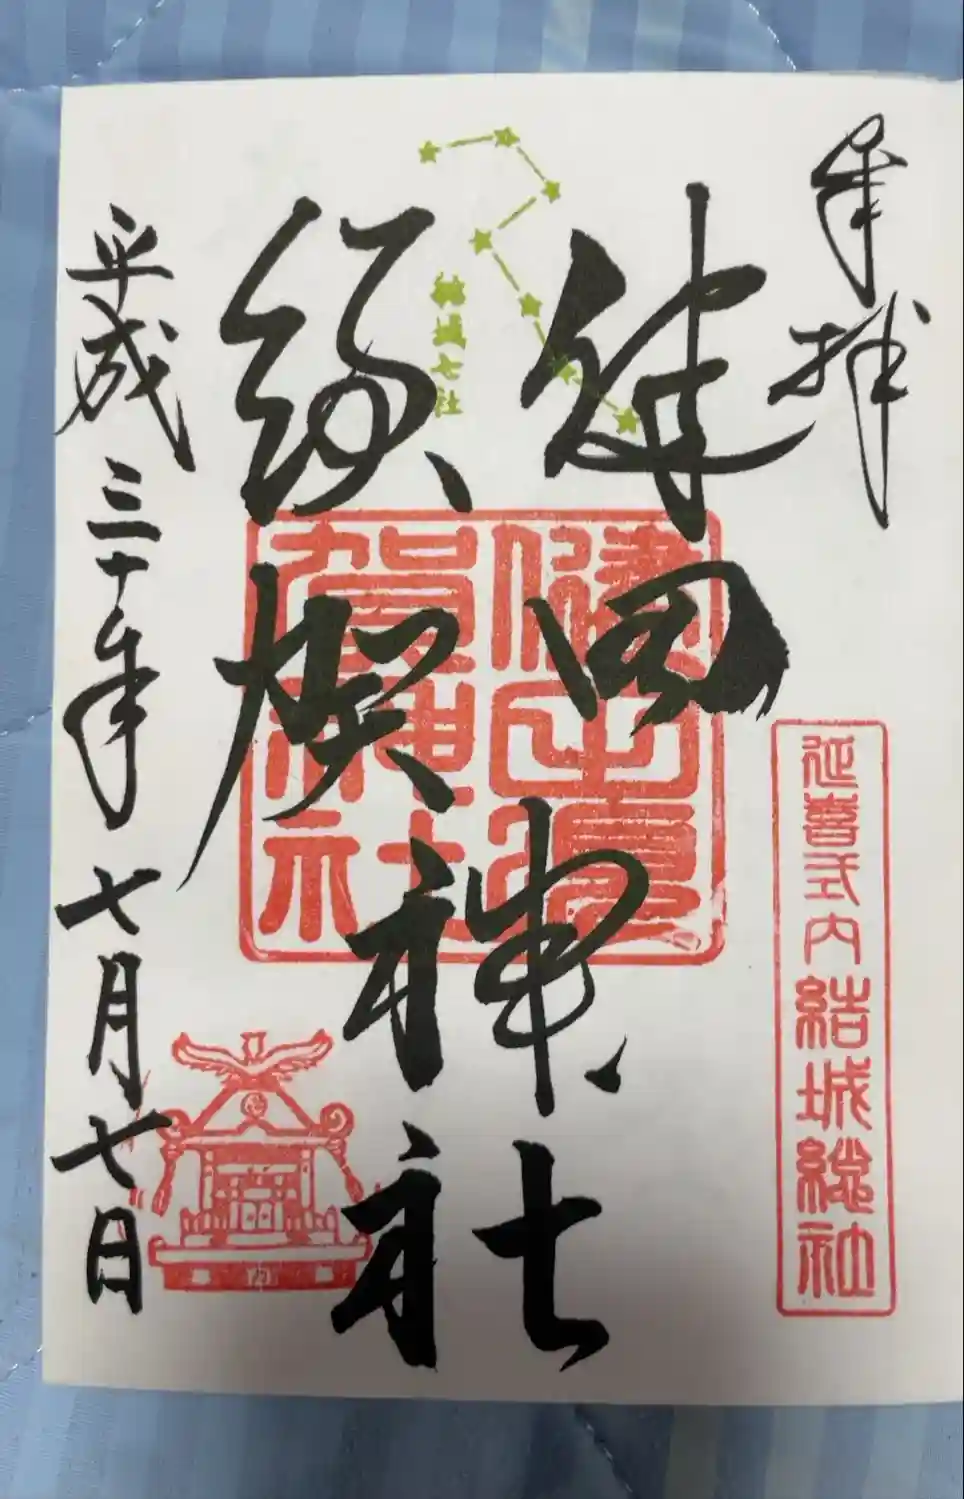 奉拝
延喜式内結城総社
健田
須賀
神社
結城七社
健田須賀神社
平成三十年七月七日